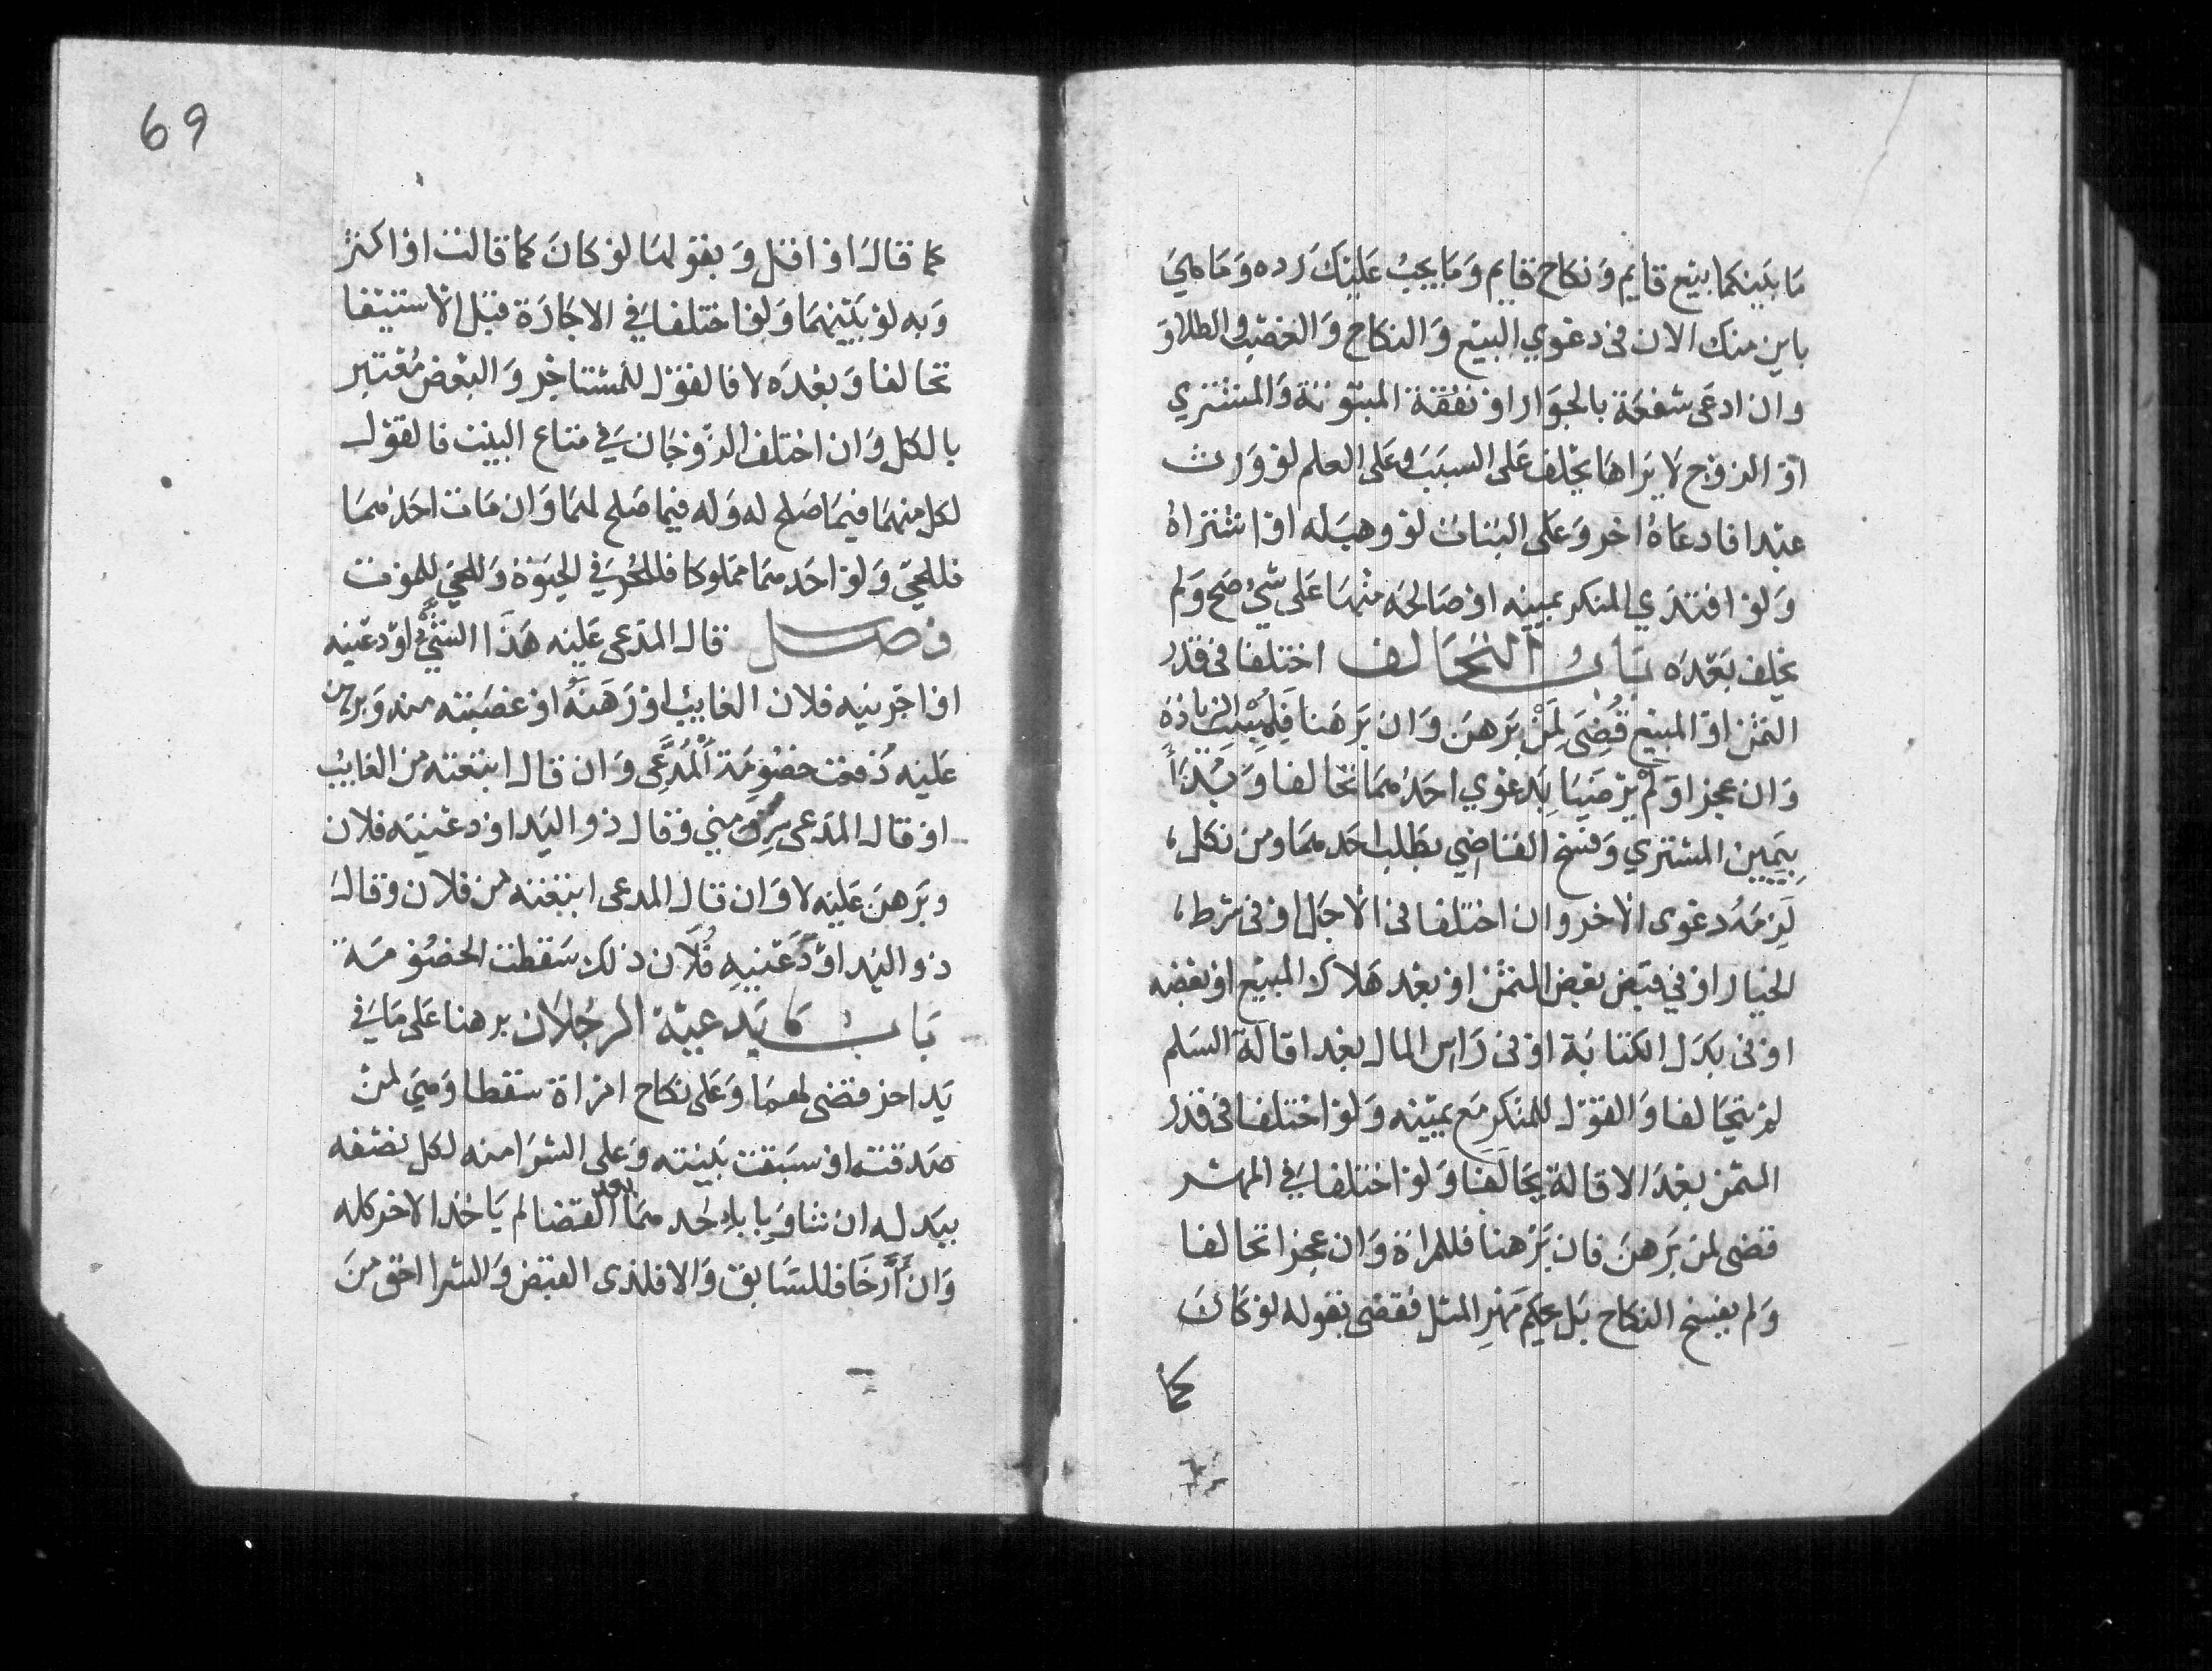 ما بينكما بيع قايم ونكاح قايم وما يجب عليك رده وما هي
باين منك الان في دعوي البيع والنكاح والغصب والطلاق
وان ادعى شفعة بالجوار او نفقة المبتوتة والمشتري
او الزوج لا يراها يحلف على السبب وعلى العلم لو ورث
عبدا فادعاه اخر وعلى البتات لو وهب له او اشتراه
ولو افتدي المنكر يمينه او صالحه منها على شي صح ولم
يحلف بعده باب التحالف اختلفا في قدر
الثمن او المبيع قضى لمن برهن وان برهنا فلمثبت الزيادة
وان عجزا ولم يرضيا بدعوي احدهما تحالفا ويبدأ
بيمين المشتري وفسخ القاضي بطلب احدهما ومن نكل
لزمه دعوى الاخر وان اختلفا في الاجل او في شرط
الخيار او في قبض بعض الثمن او بعد هلاك المبيع او بعضه
او في بدل الكتابة او في راس المال بعد اقالة السلم
لم يتحالفا والقول للمنكر مع يمينه ولو اختلفا في قدر
الثمن بعد الاقالة تحالفا ولو اختلفا في المهر
قضى لمن برهن فان برهنا فللمراة وان عجزا تحالفا
ولم يفسخ النكاح بل يحكم مهر المثل فقضى بقوله لو كان
كما
69
كما قال او اقل وبقولها لو كان كما قالت او اكثر
وبه لو بينهما ولو اختلفا في الاجارة قبل الاستيفا
تحالفا وبعده لا فالقول للمستاجر والبعض معتبر
بالكل وان اختلف الزوجان في متاع البيت فالقول
لكل منهما فيما صلح له وله فيما صلح لهما وان مات احدهما
فللحي ولو احدهما مملوكا فللحر في الحيوة وللحي للموت
فصل قال المدعى عليه هذا الشي اودعنيه
او اجرنيه فلان الغايب او رهنه او غصبته منه وبرهن
عليه دفعت خصومة المدعى وان قال ابتعته من الغايب
او قال المدعى سرق مني وقال ذو اليد اودعنيه فلان
وبرهن عليه لا وان قال المدعى ابتعته من فلان وقال
ذو اليد اودعنيه فلان ذلك سقطت الخصومة
باب ما يدعيه الرجلان برهنا على ما في
يد اخر قضى لهما وعلى نكاح امراة سقطا وهي لمن
صدقته او سبقت بينته وعلى الشرا منه لكل نصفه
ببدله ان شا وبابا احدهما بعد القضا لم ياخذ الاخر كله
وان أرخا فللسابق والا فلذى القبض والشرا احق من